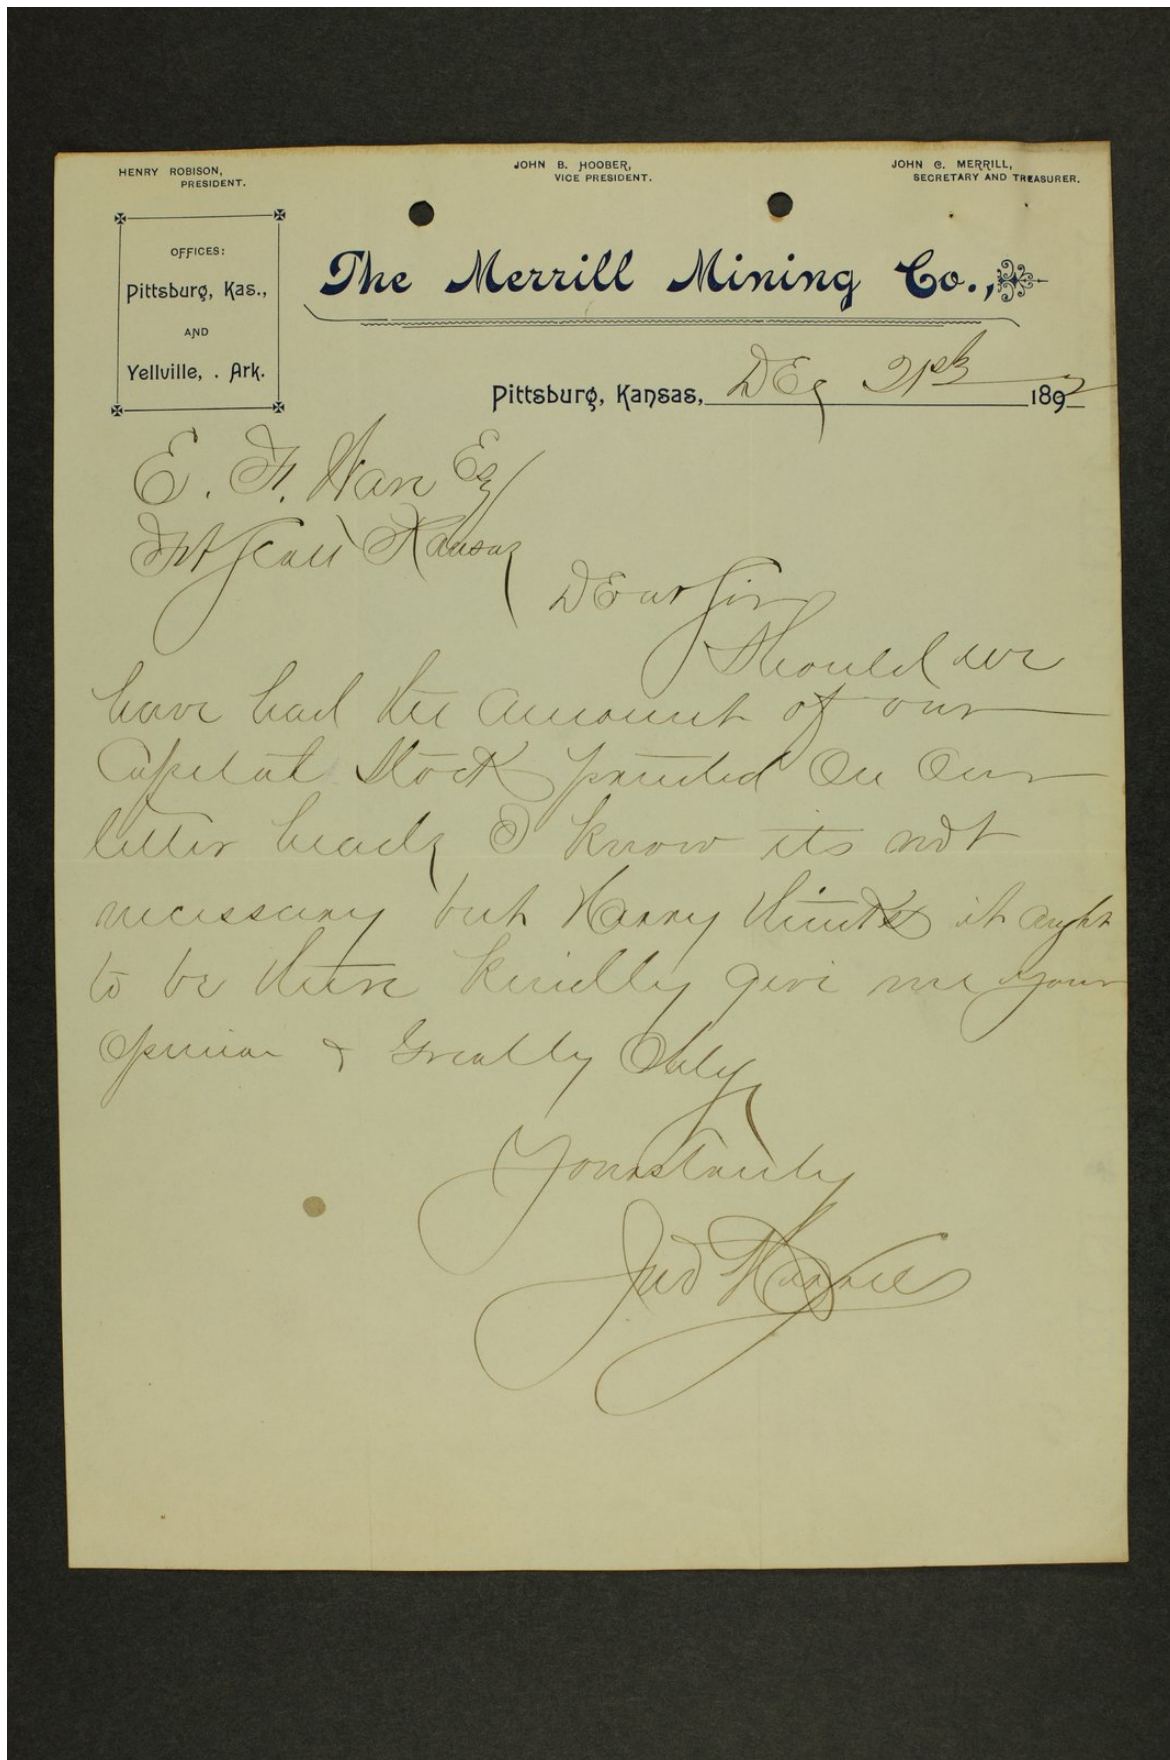 HENRY ROBISON,
PRESIDENT.
JOHN B. HOOBER,
VICE PRESIDENT.
JOHN C. MERRILL,
SECRETARY AND TREASURER.
OFFICES:
Pittsburg, Kas.,
AND
Yellville, . Ark.
The Merrill Mining Co.,
Pittsburg, Kansas, DEc 21st 1892
E. F. Ware Esq
Ft Scott Kansas
DEar Sir
Should we
have had the amount of our
Capital Stock printed On Our
letter heads I know its not
necessary but Harry thinks it aught
to be there kindly give me your
Opinion & Greatly Oblg
Yours truly
Jno